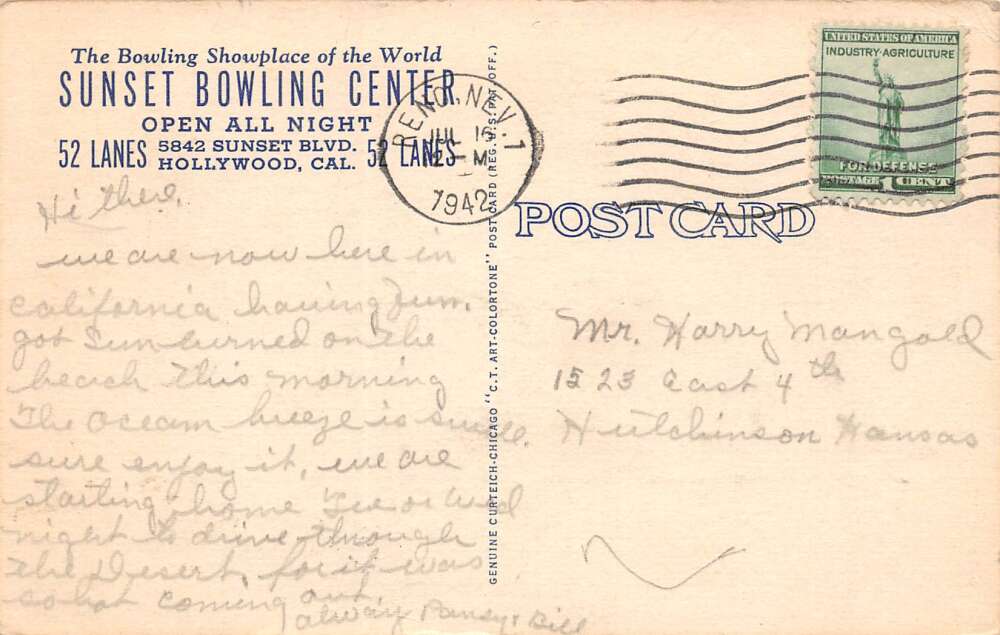 The Bowling Showplace of the World
SUNSET BOWLING CENTER
OPEN ALL NIGHT
52 LANES 5842 SUNSET BLVD. HOLLYWOOD, CAL. 52 LANES
Hi there,
we are now here in
California having fun.
got sun burned on the
beach this morning
The Ocean breeze is swell.
sure enjoy it, we are
starting home Tue or Wed
night to drive through
the Desert, for it was
so hot coming out.
alway Pansy & Bill
GENUINE CURTEICH-CHICAGO "C.T. ART-COLORTONE" POST CARD (REG. U.S. PAT. OFF.)
RENO, NEV. 1
JUL 16
M
1942
UNITED STATES OF AMERICA
INDUSTRY·AGRICULTURE
FOR DEFENSE
POSTAGE 1 CENT
POST CARD
Mr. Harry Mangold
1523 East 4th
Hutchinson Kansas